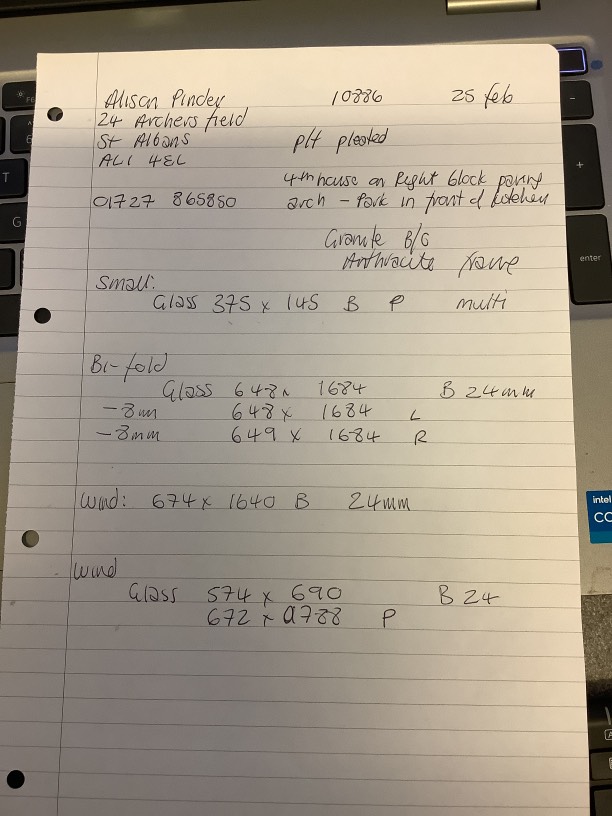 Alison Pinder 10886 25 feb
24 Archers field
St Albans pft pleated
AL1 4EL
4th house on Right block paving
01727 865850 arch - Park in front of kitchen
Granite B/C
Anthracite frame
Small:
Glass 375 x 145 B P multi
Bi-fold
Glass 648 x 1684 B 24mm
-8mm 648 x 1684 L
-8mm 649 x 1684 R
Wind: 674 x 1640 B 24mm
Wind
Glass 574 x 690 B 24
672 x 788 P
enter
intel